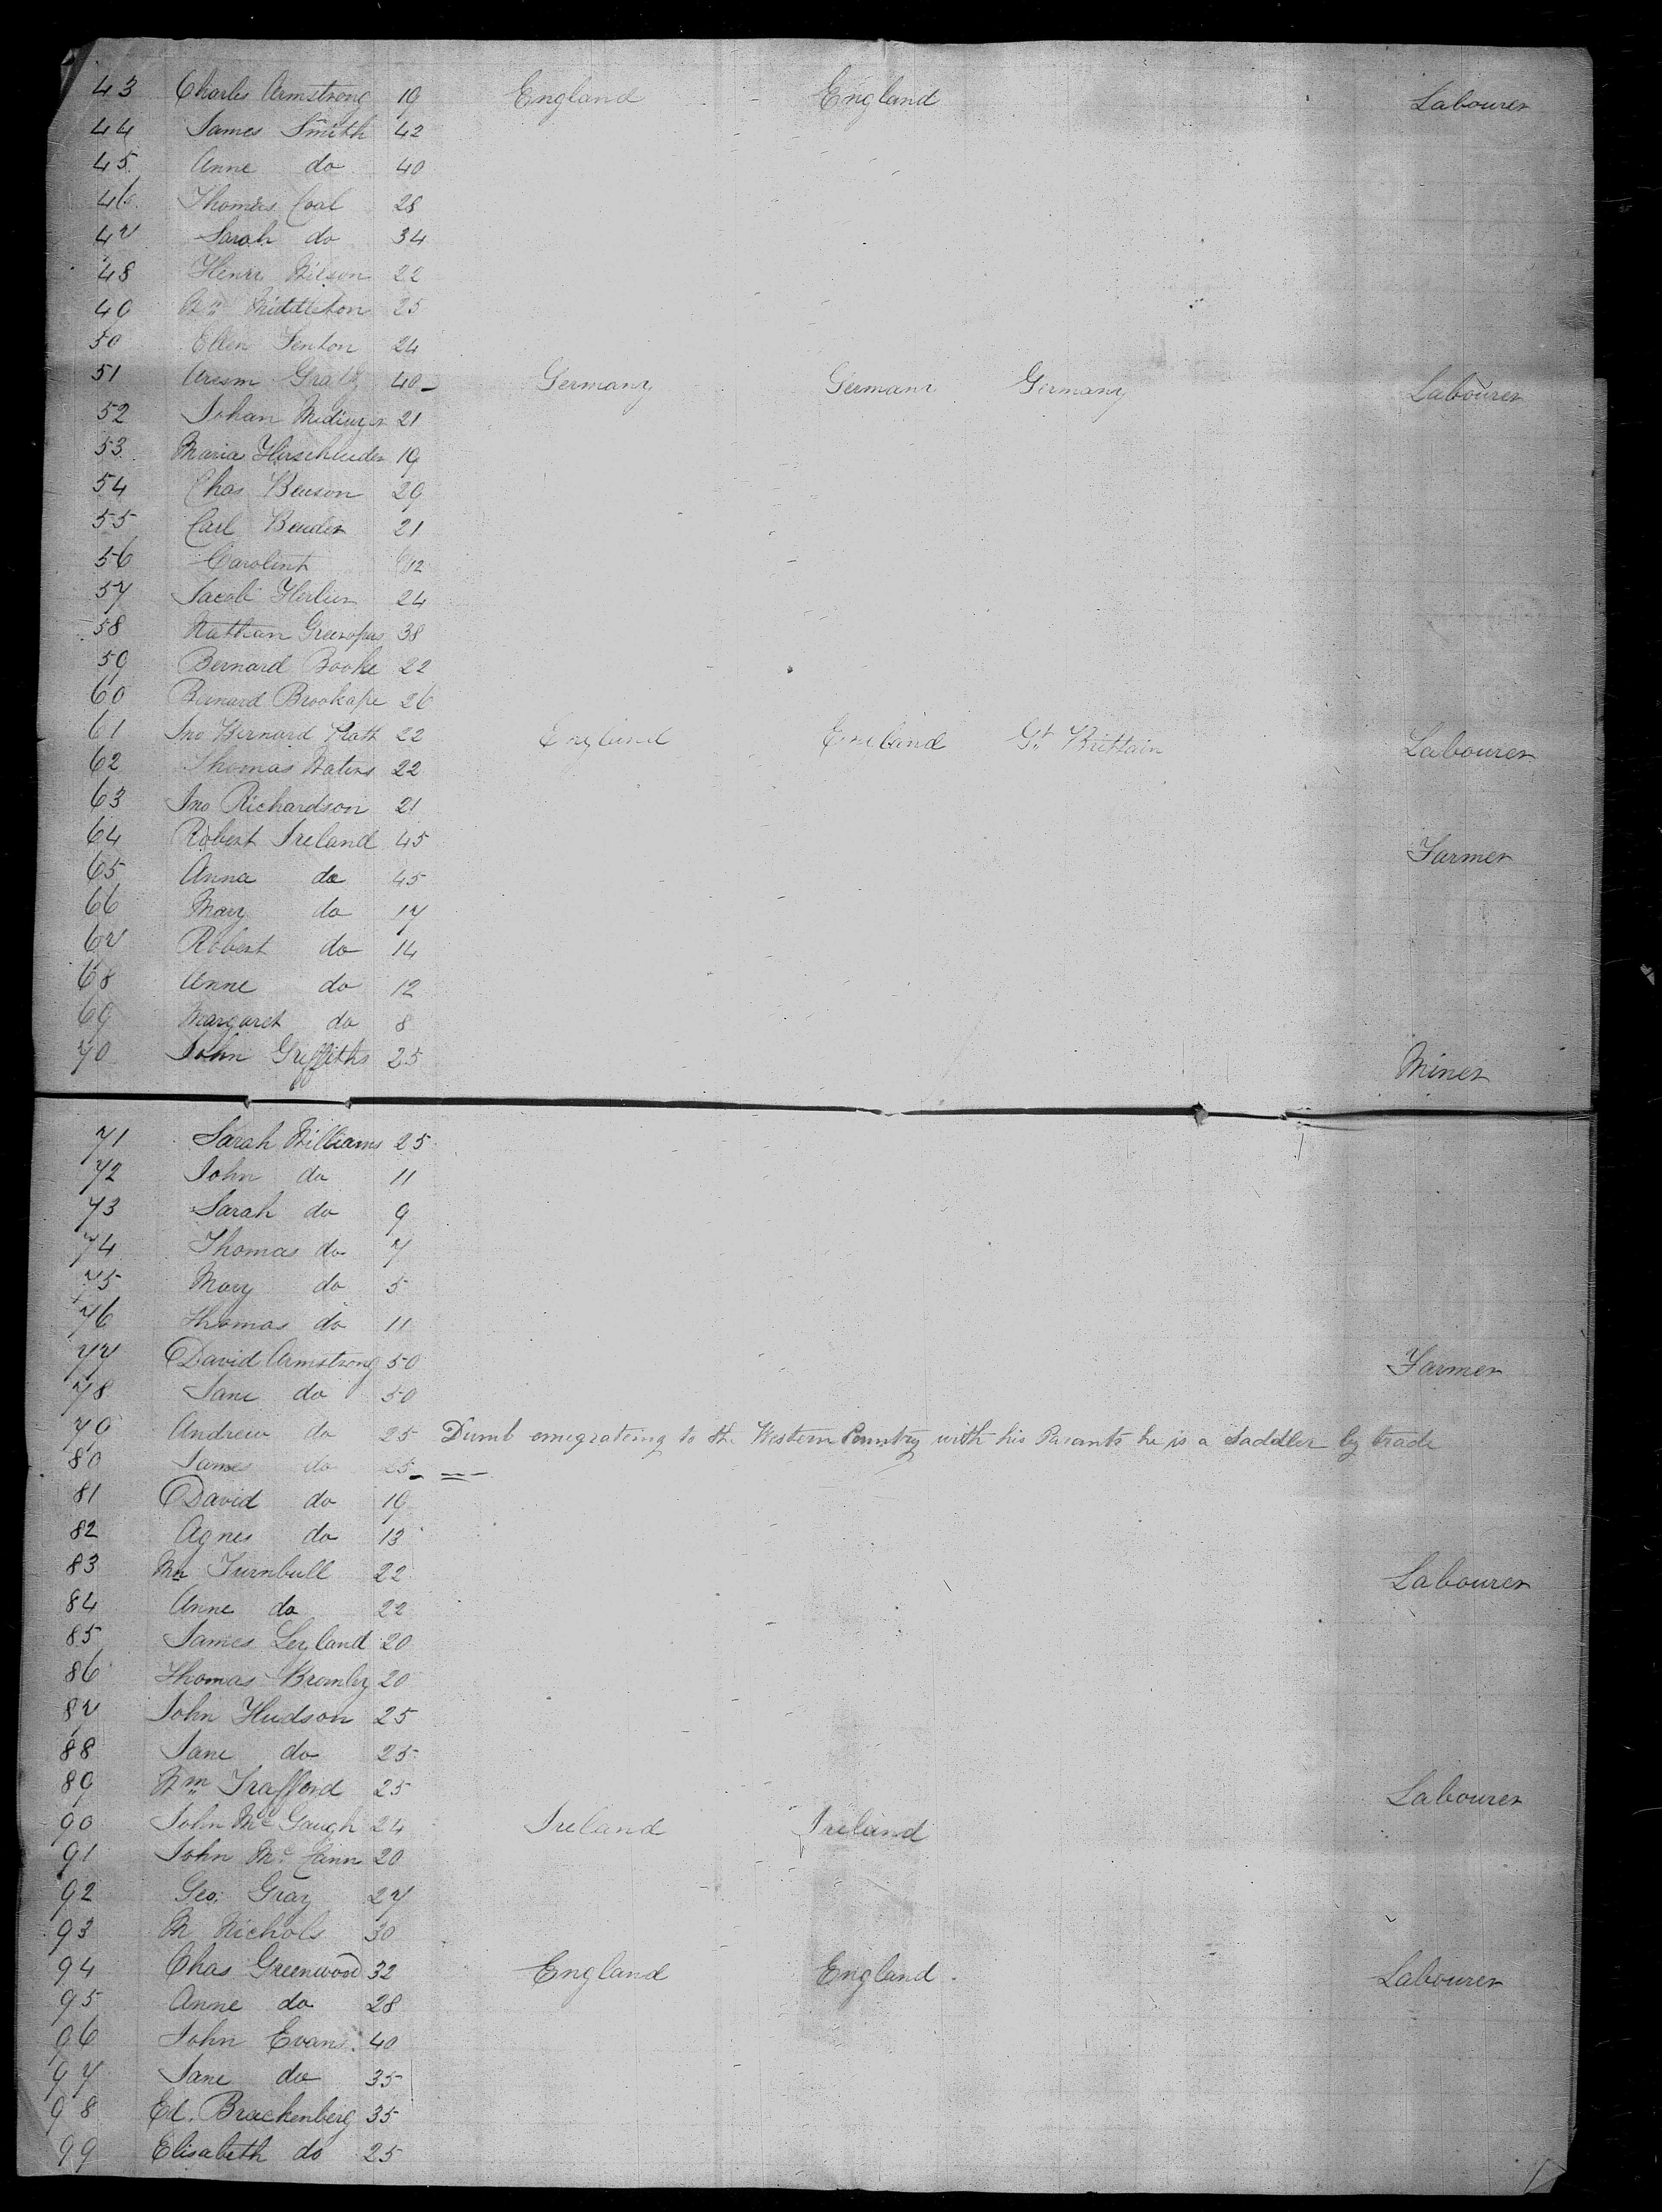 43 Charles Armstrong 19 England England Labourer
44 James Smith 42
45 Anne do 40
46 Thomas Coal 28
47 Sarah do 34
48 Henry Wilson 22
49 Wm Middleton 25
50 Ellen Fenton 24
51 40 Germany Germany Germany Labourer
52 Johan 21
53 Maria 19
54 Chas Benson 29
55 Carl Bender 21
56 Caroline
57 Jacob 24
58 Nathan 38
59 Bernard Booke 22
60 Bernard Brookape 26
61 Jno Bernard Platt 22 England England Gt Brittain Labourer
62 Thomas Waters 22
63 Jno Richardson 21
64 Robert Ireland 45 Farmer
65 Anna do 45
66 Mary do 17
67 Robert do 14
68 Anne do 12
69 Margaret do 8
70 John Griffiths 25 Miner
71 Sarah Williams 25
72 John do 11
73 Sarah do 9
74 Thomas do 7
75 Mary do 5
76 Thomas do 11
77 David Armstrong 50 Farmer
78 Jane do 50
79 Andrew do 25 Dumb emigrateing to the Western Country with his Parants he is a Saddler by trade
80 James do 25
81 David do 19
82 Agnes do 13
83 Wm Turnbull 22 Labourer
84 Anne do 22
85 James Leyland 20
86 Thomas Bromley 20
87 John Hudson 25
88 Jane do 25
89 Wm Trafford 25 Labourer
90 John McGough 24 Ireland Ireland
91 John McCann 20
92 Geo. Gray 27
93 M Nichols 30
94 Chas Greenwood 32 England England. Labourer
95 Anne do 28
96 John Evans 40
97 Jane do 35
98 Ed. Brackenberg 35
99 Elisabeth do 25